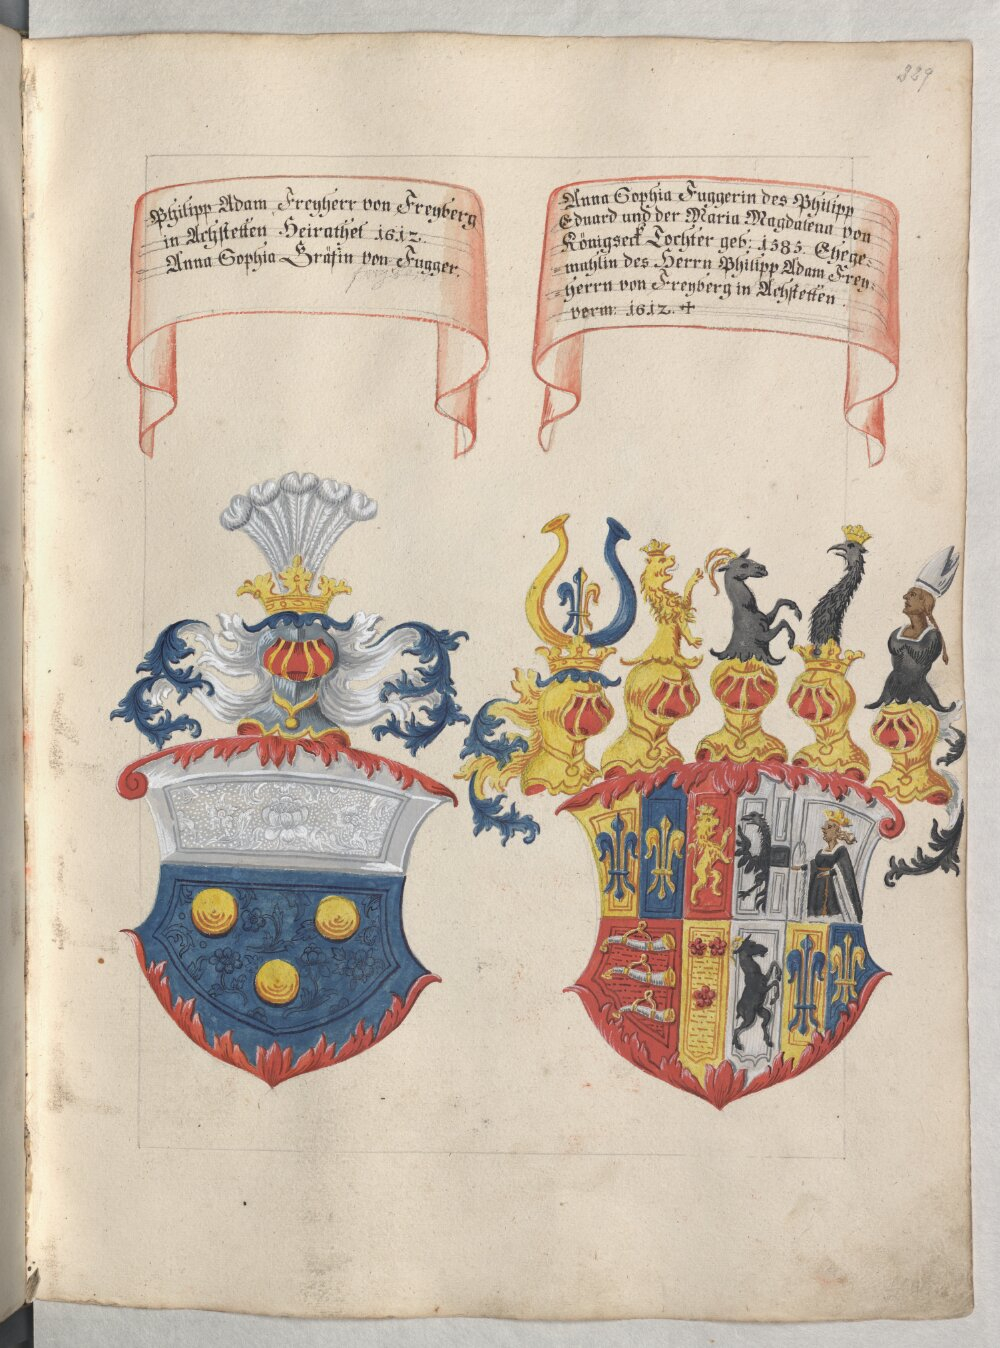 229
Philipp Adam Freyherr von Freyberg
in Achstetten Heirathet 1612.
Anna Sophia Gräfin von Fugger.
Anna Sophia Fuggerin des Philipp
Eduard und der Maria Magdalena von
Königseck Tochter geb: 1585. Ehege-
mahlin des Herrn Philipp Adam Frey-
herrn von Freyberg in Achstetten
verm: 1612. ✝